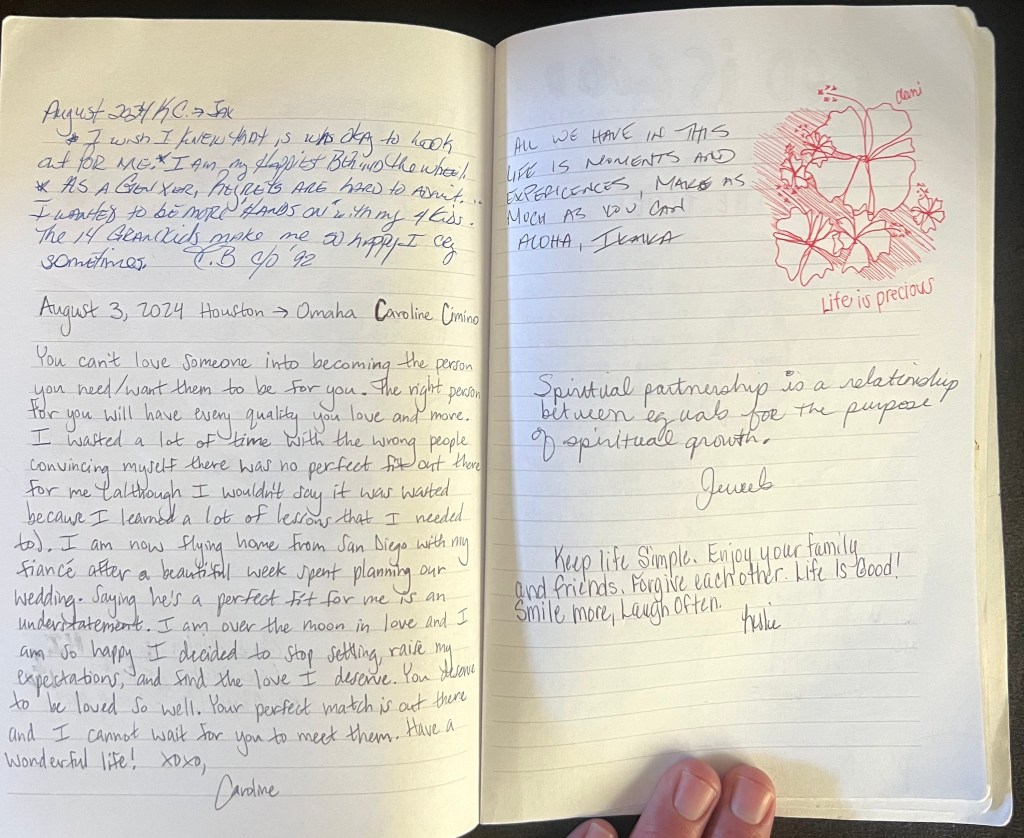 August 2024 KC. → Jax
* I wish I knew that is was okay to look
out for me. * I am my happiest behind the wheel.
* As a GenXer, regrets are hard to admit...
I wanted to be more "hands on" with my 4 kids.
The 14 Grandkids make me so happy I cry
sometimes. C.B c/o '92
August 3, 2024 Houston → Omaha Caroline Cimino
You can't love someone into becoming the person
you need/want them to be for you. The right person
for you will have every quality you love and more.
I wasted a lot of time with the wrong people
convincing myself there was no perfect fit out there
for me (although I wouldn't say it was wasted
because I learned a lot of lessons that I needed
to). I am now flying home from San Diego with my
fiancé after a beautiful week spent planning our
wedding. Saying he's a perfect fit for me is an
understatement. I am over the moon in love and I
am so happy I decided to stop settling, raise my
expectations, and find the love I deserve. You deserve
to be loved so well. Your perfect match is out there
and I cannot wait for you to meet them. Have a
wonderful life! XOXO,
Caroline
ALL WE HAVE IN THIS
LIFE IS MOMENTS AND
EXPERICENCES, MAKE AS
MUCH AS YOU CAN
ALOHA, IKAIKA
dani
Life is precious
Spiritual partnership is a relationship
between equals for the purpose
of spiritual growth.
Jewels
Keep life Simple. Enjoy your family
and friends. Forgive each other. Life is Good!
Smile more, Laugh Often.